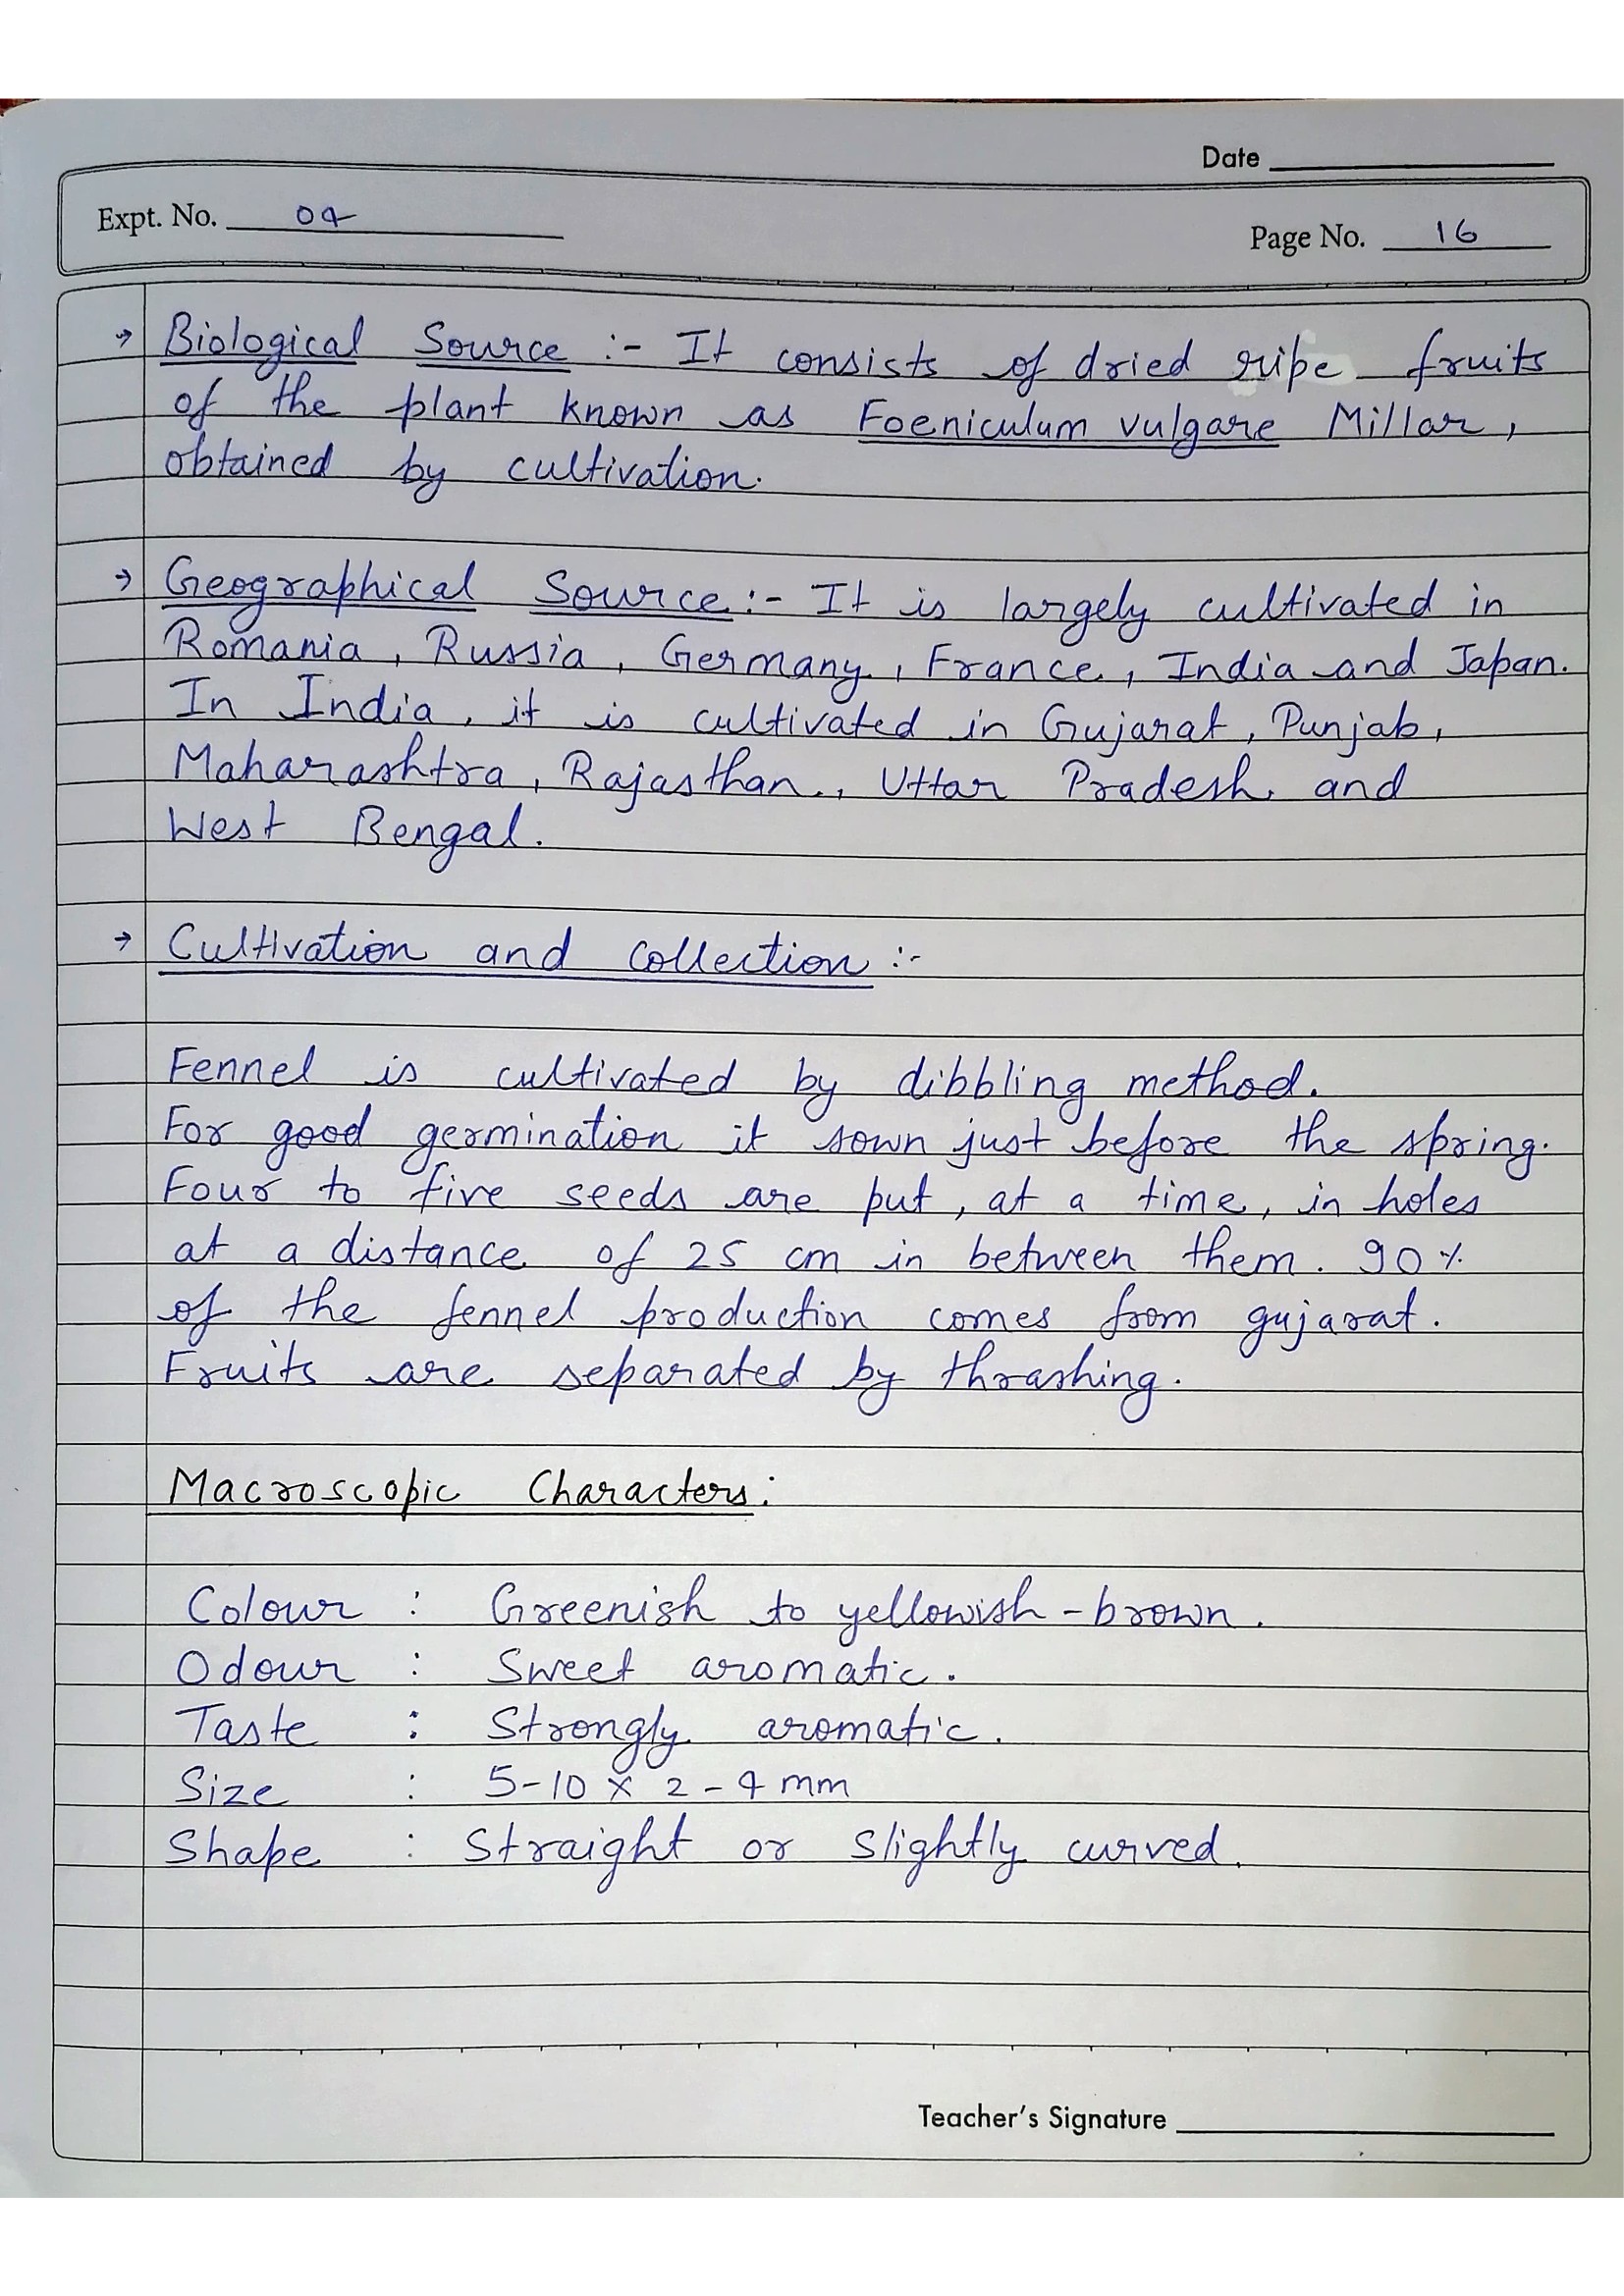 Date
Expt. No. 04
Page No. 16
→ Biological Source :- It consists of dried ripe fruits
of the plant known as Foeniculum vulgare Millar,
obtained by cultivation.
→ Geographical Source :- It is largely cultivated in
Romania, Russia, Germany, France, India and Japan.
In India, it is cultivated in Gujarat, Punjab,
Maharashtra, Rajasthan., Uttar Pradesh and
West Bengal.
→ Cultivation and collection :-
Fennel is cultivated by dibbling method.
For good germination it sown just before the spring.
Four to five seeds are put, at a time, in holes
at a distance of 25 cm in between them. 90%
of the fennel production comes from gujarat.
Fruits are separated by thrashing.
Macroscopic Characters:
Colour : Greenish to yellowish-brown.
Odour : Sweet aromatic.
Taste : Strongly aromatic.
Size : 5-10 x 2-4 mm
Shape : Straight or slightly curved.
Teacher's Signature